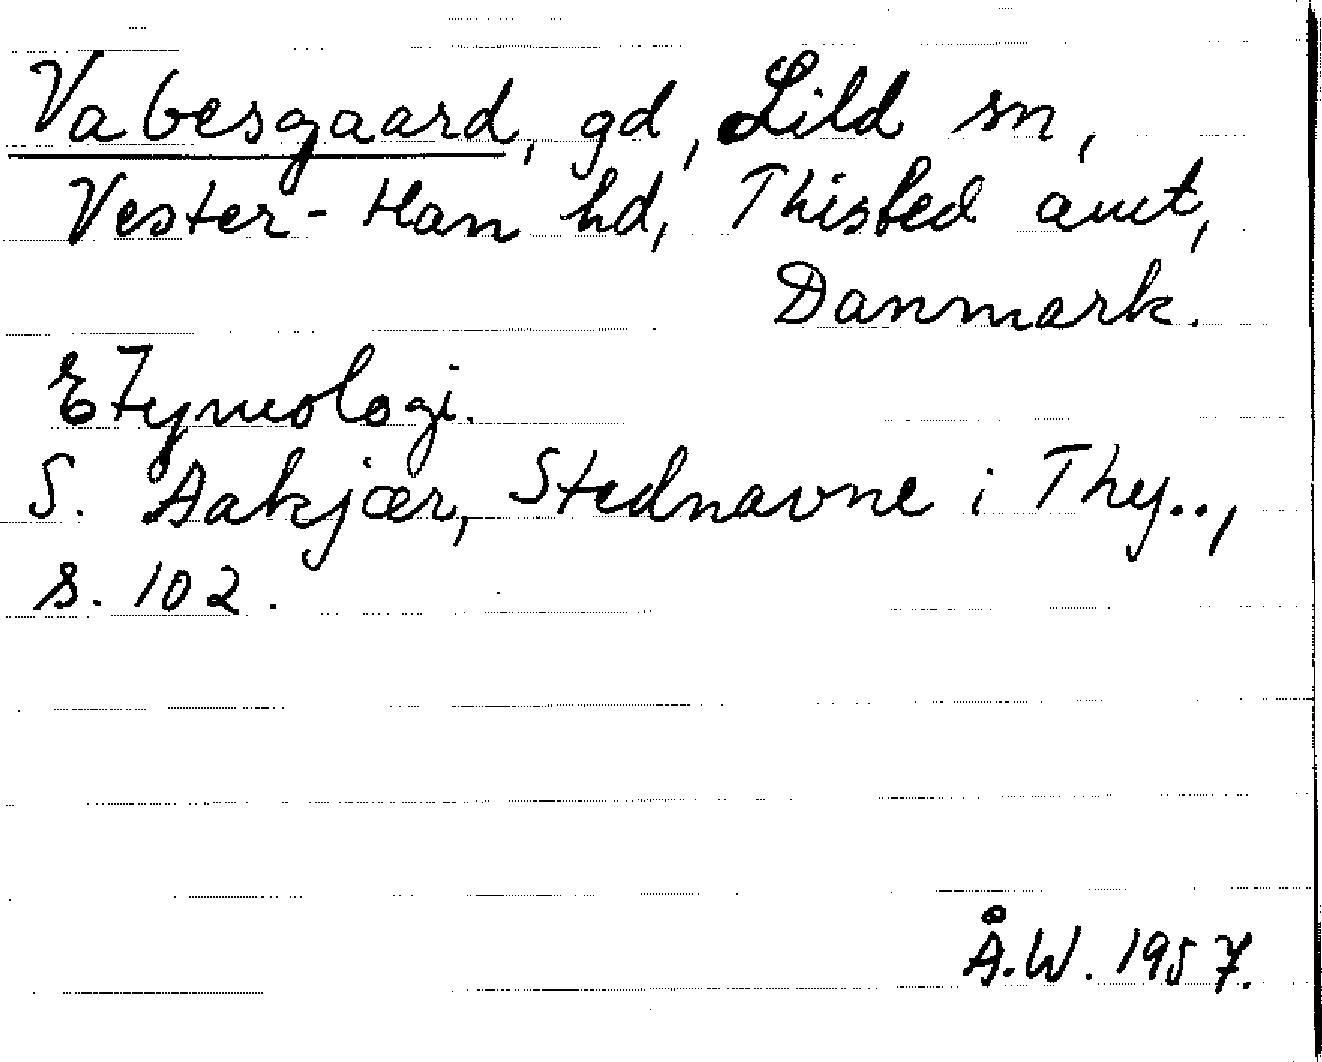 Vabesgaard, gd, Lild sn,
Vester-Han hd, Thisted amt,
Danmark.
Etymologi.
S. Aakjær, Stednavne i Thy..,
s. 102.
Å.W. 1957.